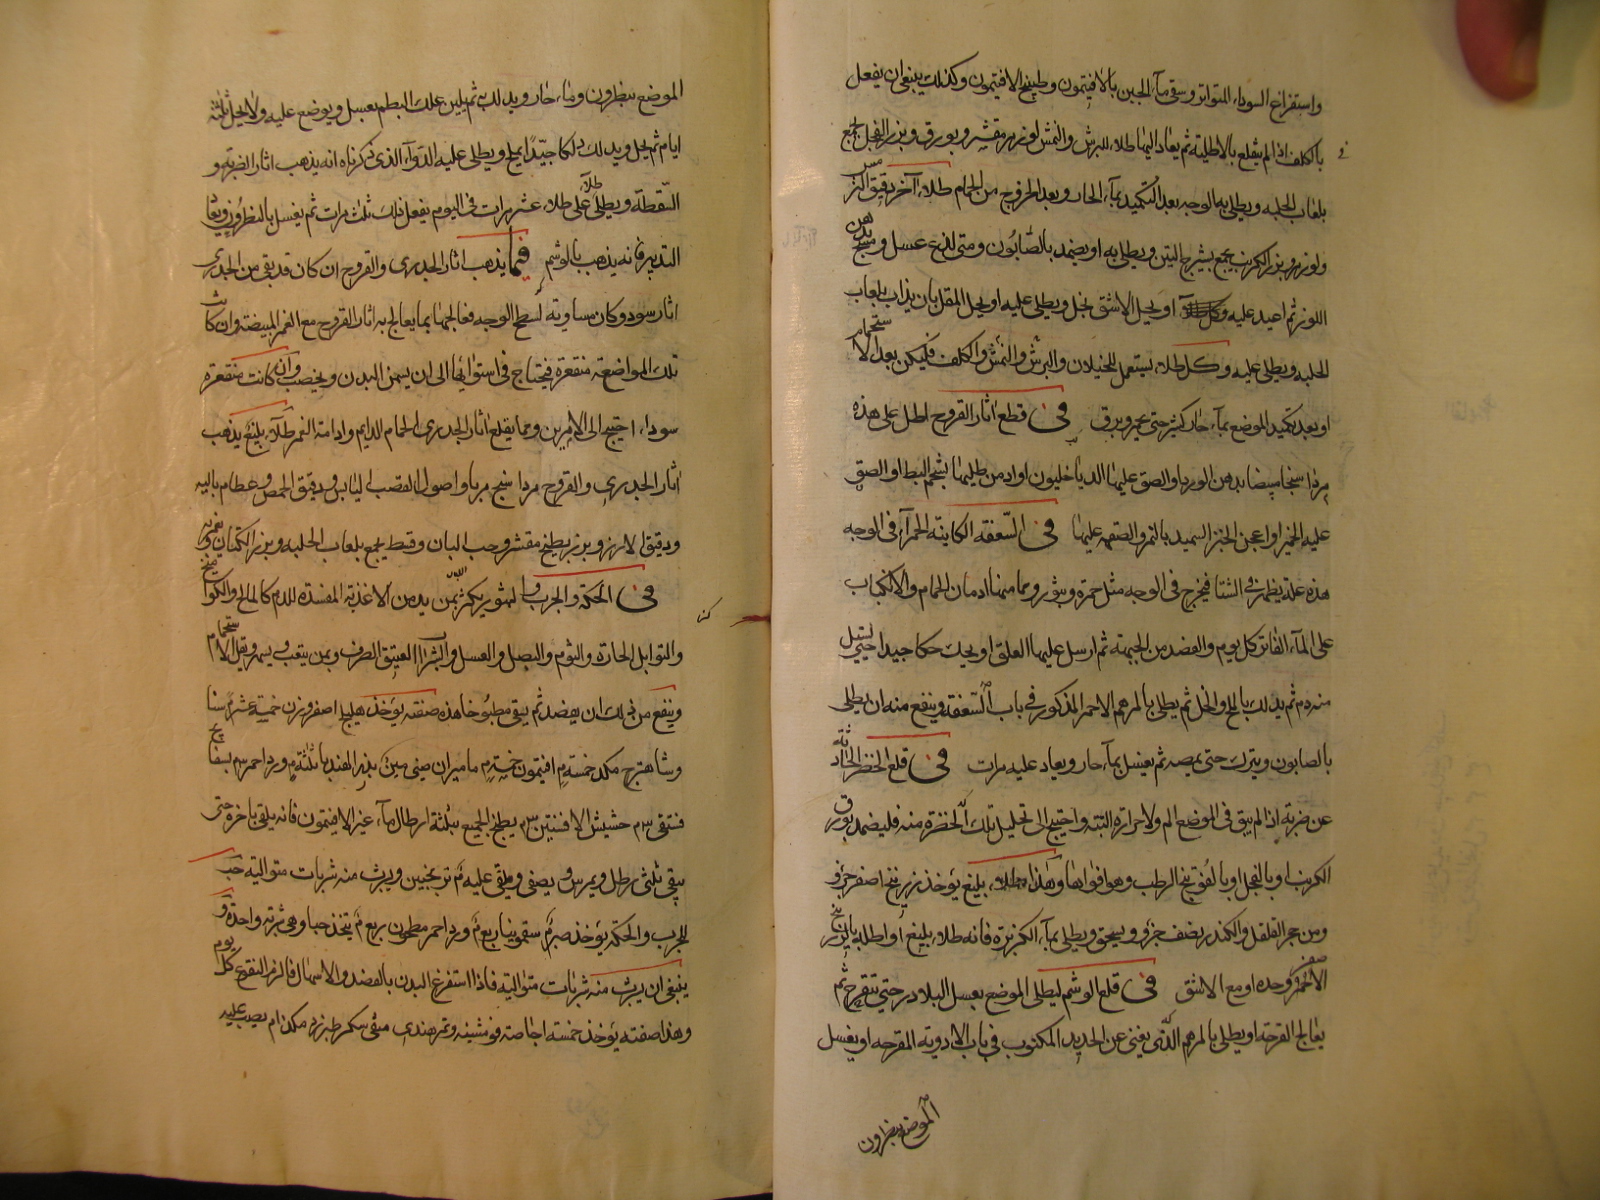 واستفراغ السوداء المتواتر وسقى ماء الجبن بالافتيمون وطبيخ الافتيمون وكذلك ينبغى ان يفعل
بالكلف اذا لم ينقلع بالاطلية ثم يعاد اليها طلاء للبرش والنمش لوز مر مقشر وبورق وبزر الفجل يجمع
بلعاب الحلبه ويطلى به الوجه بعد التكميد بماء الحار وبعد الخروج من الحمام طلاء آخر دقيق الترمس
ولوز مر وبزر الكرنب يجمع بشيرج التين ويطلى به او يضمد بالصابون ومتى لذع غسل ومسح بدهن
اللوز ثم اعيد عليه او يحل الاشق بخل ويطلى عليه او يحل المقل بان يذاب بلعاب
الحلبه ويطلى عليه وكل طلاء يستعمل للخيلان والبرش والنمش والكلف فليكن بعد الاستحمام
او بعد تكميد الموضع بماء حار كثير حتى يحمر ويرق فى قطع اثار القروح اطل على هذه
مرداسنجا مبيضا بدهن الورد او الصق عليها الدياخليون او ادمن طليها بشحم البط او الصق
عليه الخمير او اعجن الخبز السميد بالتمر والصقه عليها فى السعفه الكاينه الحمرآء فى الوجه
هذه علة يظهر فى الشتا فيخرج فى الوجه مثل حمرة وبثور ومما منها ادمان الحمام والانكباب
على المآء الفاتر كل يوم والفصد من الجبهة ثم ارسل عليها العلق او يحك حكا جيدا حتى يسيل
منه دم ثم يدلك بالملح والخل ثم يطلى بالمرهم الاحمر المذكور فى باب السعفة وينفع منه ان يطلى
بالصابون ويترك حتى يمصه ثم يغسل بماء حار ويعاد عليه مرات فى قلع الخضر الحادثة
عن ضربة اذا لم يبق فى الموضع الم ولا حرارة البتة واحتيج الى تحليل تلك الخضرة منه فليضمد بورق
الكرنب او بالفجل او بالفوتنج الرطب وهو اقواها وهذا طلاء بليغ يؤخذ زرنيخ اصفر جزو
ومن حجر الفلفل والكندر نصف جزو ويسحق ويطلى بماء الكزبرة فانه طلاء بليغ او اطله بالزرنيخ
الاصفر وحده او مع الاشق فى قلع الوشم ليطلى الموضع بعسل البلادر حتى يتقرح ثم
يعالج القرحه او يطلى بالمرهم الذى يغنى عن الحديد المكتوب فى باب الادوية المقرحه او يغسل
الموضع بنطرون
الموضع بنطرون وماء حار ويدلك به ثم يلين علك البطم بعسل ويوضع عليه ولا يحل ثلثة
ايام ثم يحل ويدلك دلكا جيدا بملح ويطلى عليه الدوآء الذى ذكرناه انه يذهب اثار الضربة و
النقطة ويطلى على طلاء عشر مرات فى اليوم يفعل ذلك ثلث مرات ثم يغسل بالنطرون ويعاد
التدبير فانه يذهب بالوشم فيما يذهب اثار الجدرى والقروح ان كان قد بقى من الجدرى
اثار سود وكان مساوية لسطح الوجه فعالجها بما يعالج به اثار القروح مع الغمر المبيضة وان كانت
تلك المواضع منقعرة فيحتاج فى استوائها الى ان يسمن البدن ويخصب وان كانت منقعرة
سوداء احتيج الى الامرين ومما يقلع اثار الجدرى الحمام الدايم وادامة الغمر طلاء بليغ يذهب
اثار الجدرى والقروح مرداسنج مربا واصول القصب اليابس ودقيق الحمص وعظام باليه
ودقيق الارز وبزر بطيخ مقشر وحب البان وقسط يجمع بلعاب الحلبه وبزر الكتان
فى الحكة والجرب والبثور يكثر بمن يدمن الاغذية المفسدة للدم كالمالح والكوامخ
والتوابل الحارة والثوم والبصل والعسل والشراب العتيق الصرف وبمن يتعب ويسهر ويقل الاستحمام
وينفع من ذلك ان يفصد ثم يسقى مطبوخا هذه صفته يؤخذ هليلج اصفر وزن خمسة عشر
وشاهترج مكد خمسة افتيمون خمسة ماميران صينى بزر الهندبا ثلثة ورد احمر بسفايج
فستقى حشيش الافسنتين يطبخ الجميع بثلثة ارطال ماء غير الافتيمون فانه يلقى باخرة حتى
يبقى ثلثى رطل ويمرس ويصفى ويلقى عليه ترنجبين ويشرب منه شربات متواليه حب
للجرب والحكة يؤخذ صبر سقمونيا ربع ورد احمر مطحون ربع يتخذ حبا وهى شربة واحدة و
ينبغى ان يشرب منه شربات متواليه فاذا استفرغ البدن بالفصد والاسهال فالزم النقوع كل يوم
وهذا صفته يؤخذ خمسه اجاصة ومشمشة وتمر هندى منقى سكر طبرزد مكد يصب عليه